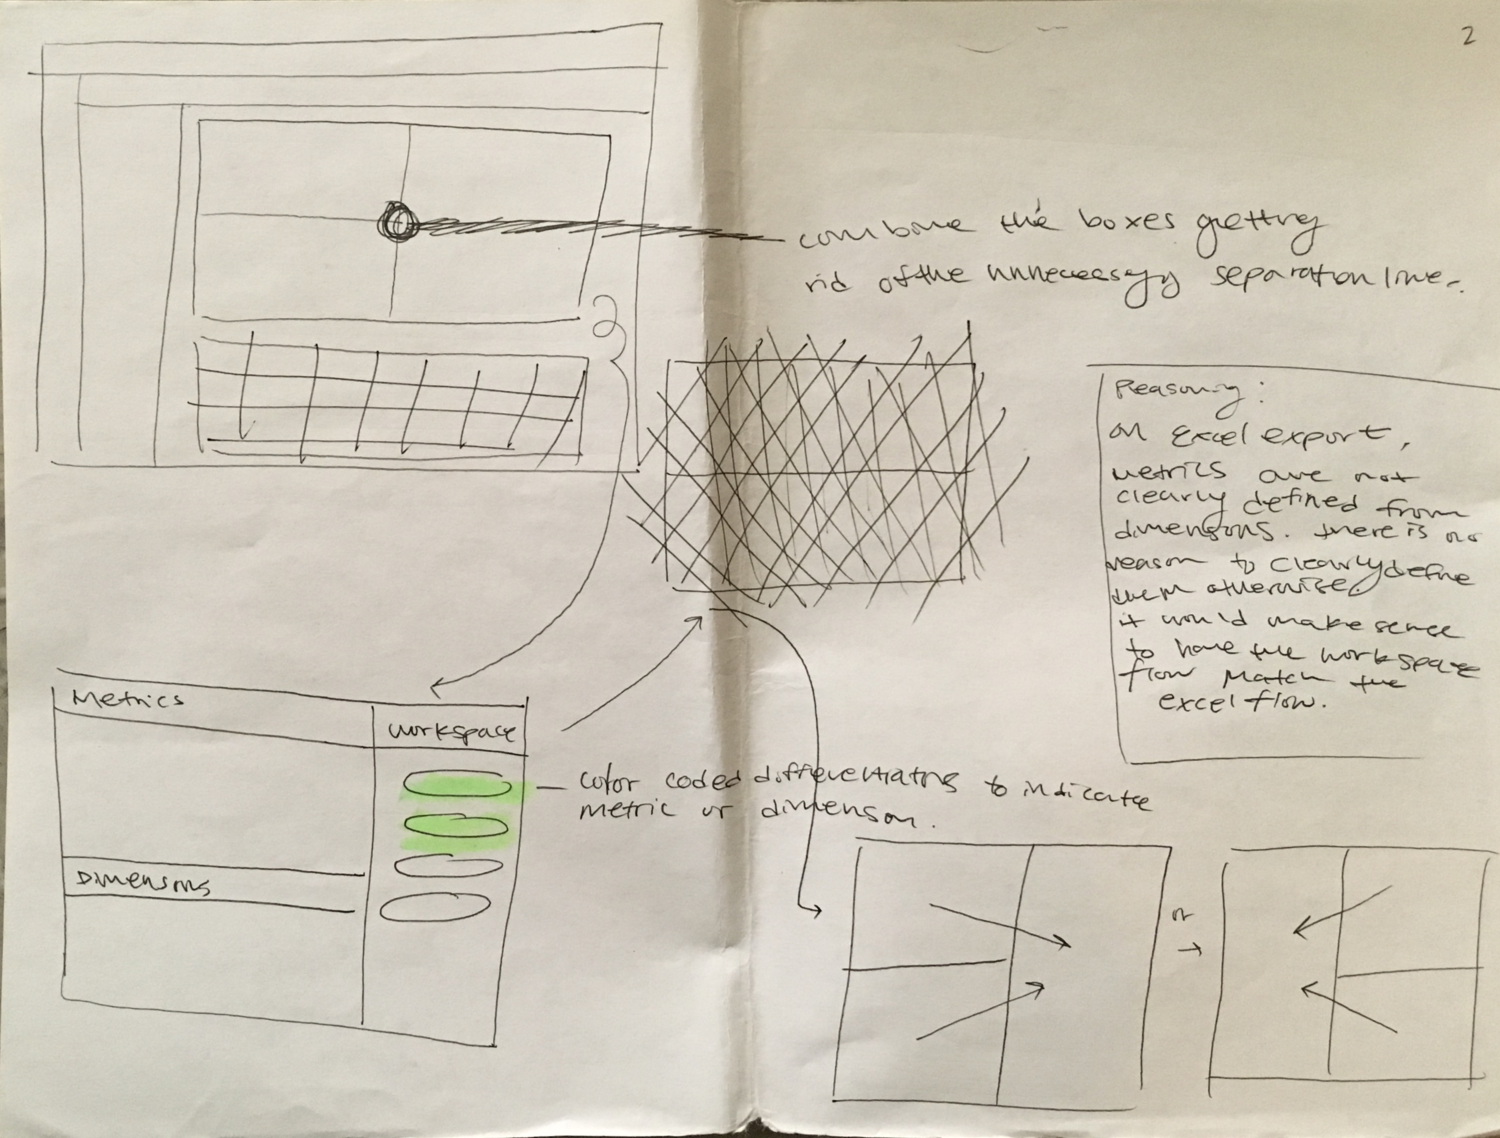 2
combine the boxes getting
rid of the unnecessary separation line.
Reasoning:
on Excel export,
metrics are not
clearly defined from
dimensions. there is no
reason to clearly define
them otherwise.
it would make sense
to have the workspace
flow match the
excel flow.
Metrics
workspace
color coded differentiations to indicate
metric or dimension.
Dimensions
or